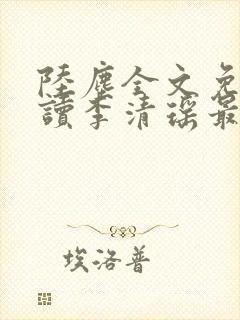 陸塵全文免
讀李清瑤最
埃洛普